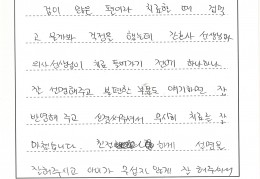 겁이 많은 편이라 치료할 때 겁먹
고 울까봐 걱정은 했는데 간호사 선생님과
의사선생님이 치료 들어가기 전까지 하나하나
잘 설명해주고 불편한 부분도 얘기하면 잘
반영해 주고 신경써주셔서 무사히 치료는 잘
마쳤습니다. 친절 하게 설명도
잘해주시고 아이가 무섭지 않게 잘 해주셔서